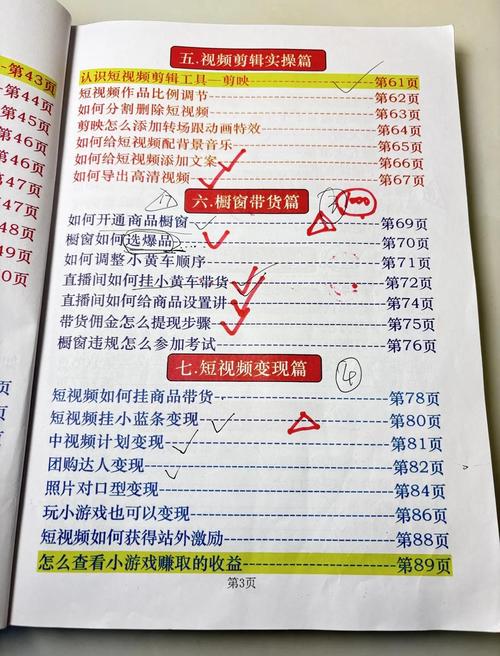 第43页
第44页
第45页
第46页
第46页
第47页
第47页
第48页
第49页
五.视频剪辑实操篇
认识短视频剪辑工具—剪映--------第61页
短视频作品比例调节--------第62页
如何分割删除短视频--------第63页
剪映怎么添加转场跟动画特效--------第64页
如何给短视频配背景音乐--------第65页
如何给短视频添加文案--------第66页
如何导出高清视频--------第67页
六.橱窗带货篇
如何开通商品橱窗--------第69页
橱窗如何选爆品--------第70页
如何调整小黄车顺序--------第71页
直播间如何挂小黄车带货--------第72页
直播间如何给商品设置讲--------第74页
带货佣金怎么提现步骤--------第75页
橱窗违规怎么参加考试--------第76页
七.短视频变现篇
④
短视频如何挂商品带货--------第78页
短视频挂小蓝条变现--------第80页
中视频计划变现--------第81页
团购达人变现--------第82页
照片对口型变现--------第84页
玩小游戏也可以变现--------第86页
短视频如何获得站外激励--------第88页
怎么查看小游戏赚取的收益--------第89页
第3页